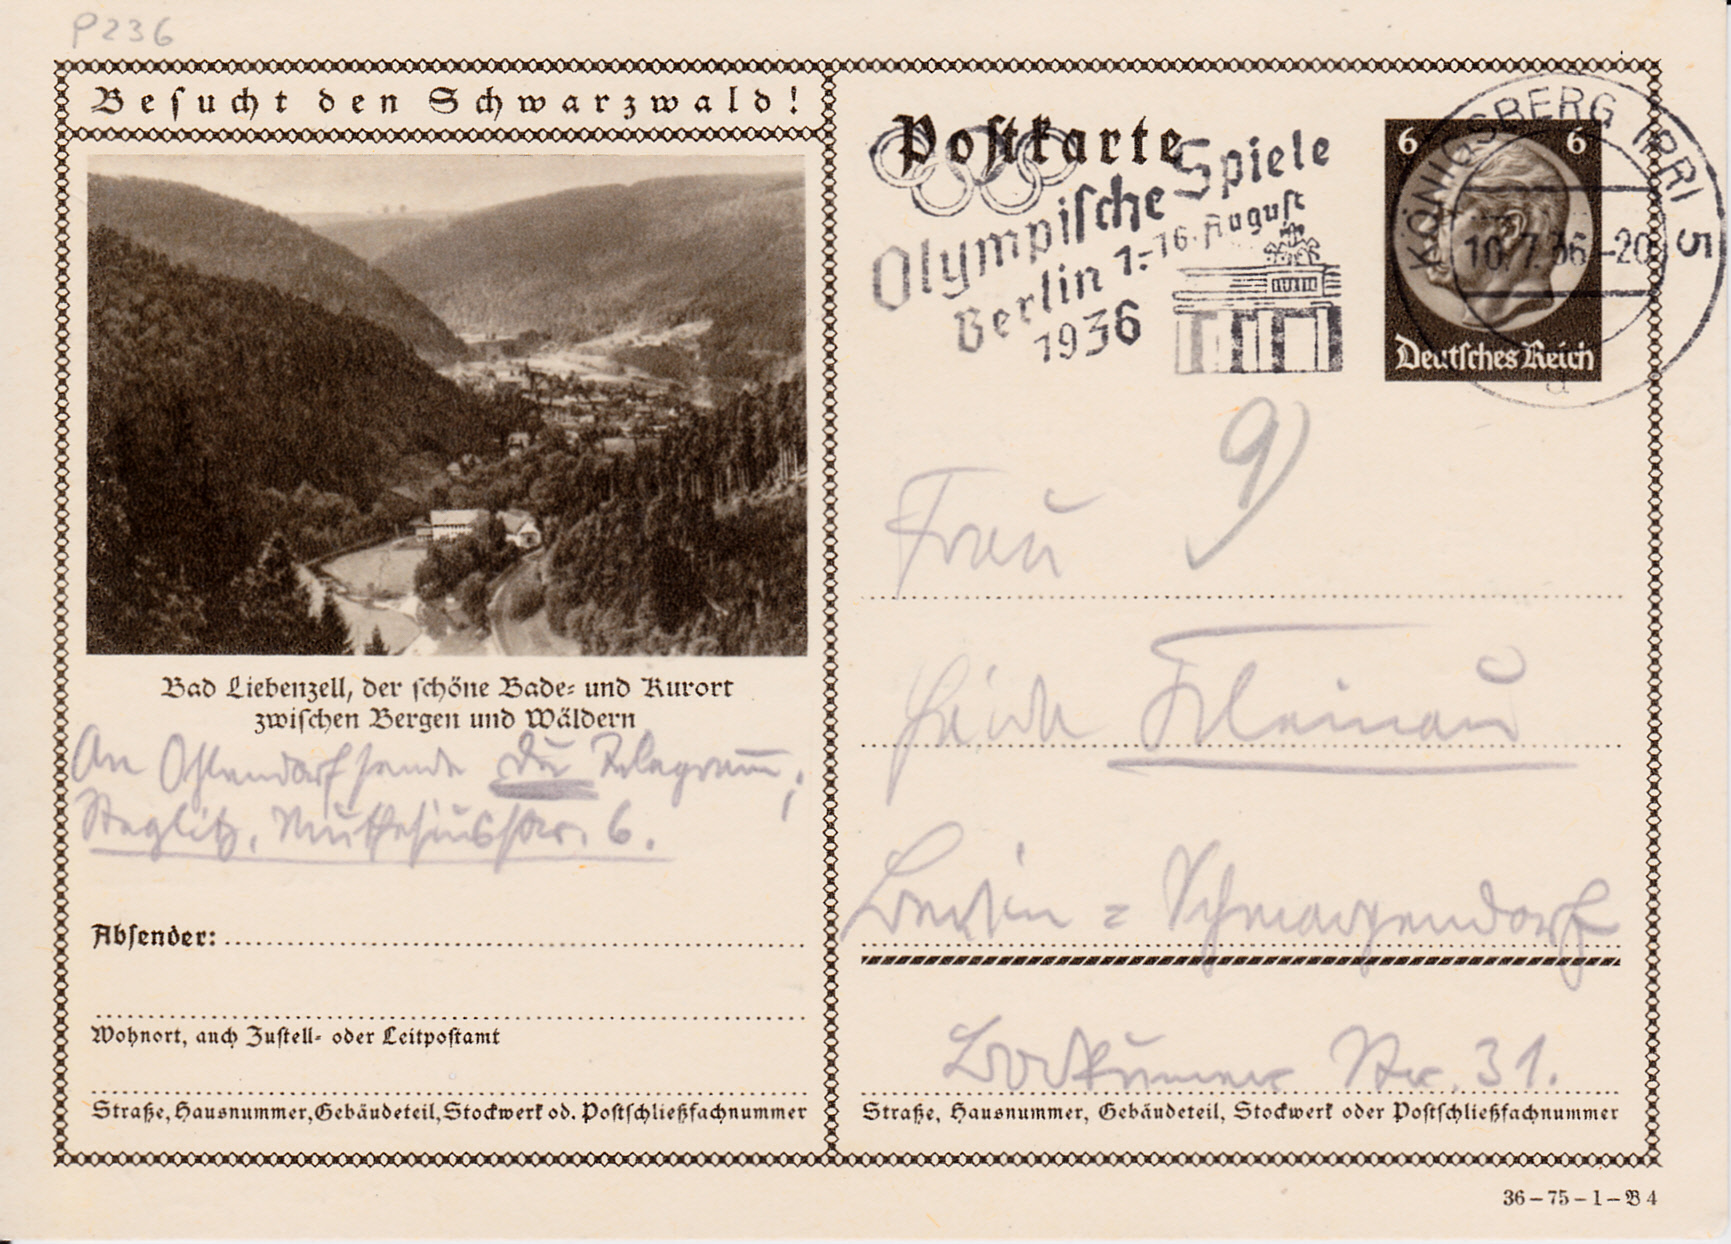 P236
Besucht den Schwarzwald!
Bad Liebenzell, der schöne Bade- und Kurort
zwischen Bergen und Wäldern
An Ohlendorf sende du Telegramm,
Steglitz, Muthesiusstr. 6.
Absender:
Wohnort, auch Zustell- oder Leitpostamt
Straße, Hausnummer, Gebäudeteil, Stockwerk od. Postschließfachnummer
Postkarte
Olympische Spiele
Berlin 1.-16. August
1936
6 6
Deutsches Reich
KÖNIGSBERG (PR) 5
10.7.36-20
a
9
Frau
Fleinau
Berlin = Schmargendorf
Borkumer Str. 31.
Straße, Hausnummer, Gebäudeteil, Stockwerk oder Postschließfachnummer
36-75-1-B 4